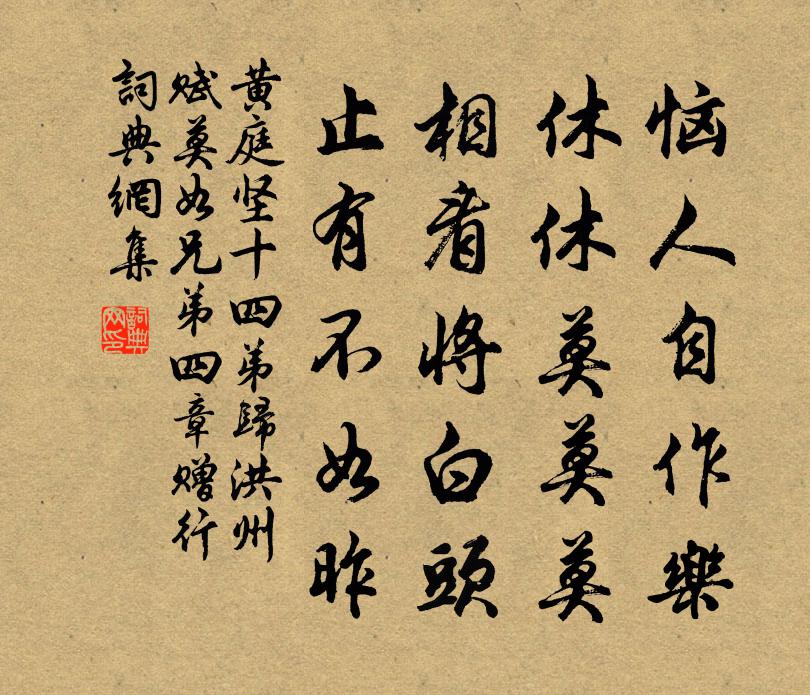 恼人自作樂
休休莫莫莫
相看將白頭
止有不如昨
黄庭坚十四弟歸洪州
赋莫如兄弟四章赠行
詞典網集
詞典网印